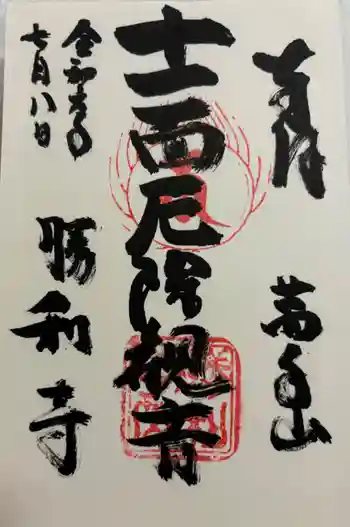 奉拝
萬年山
十一面厄除観音
令和六年
七月八日
勝利寺